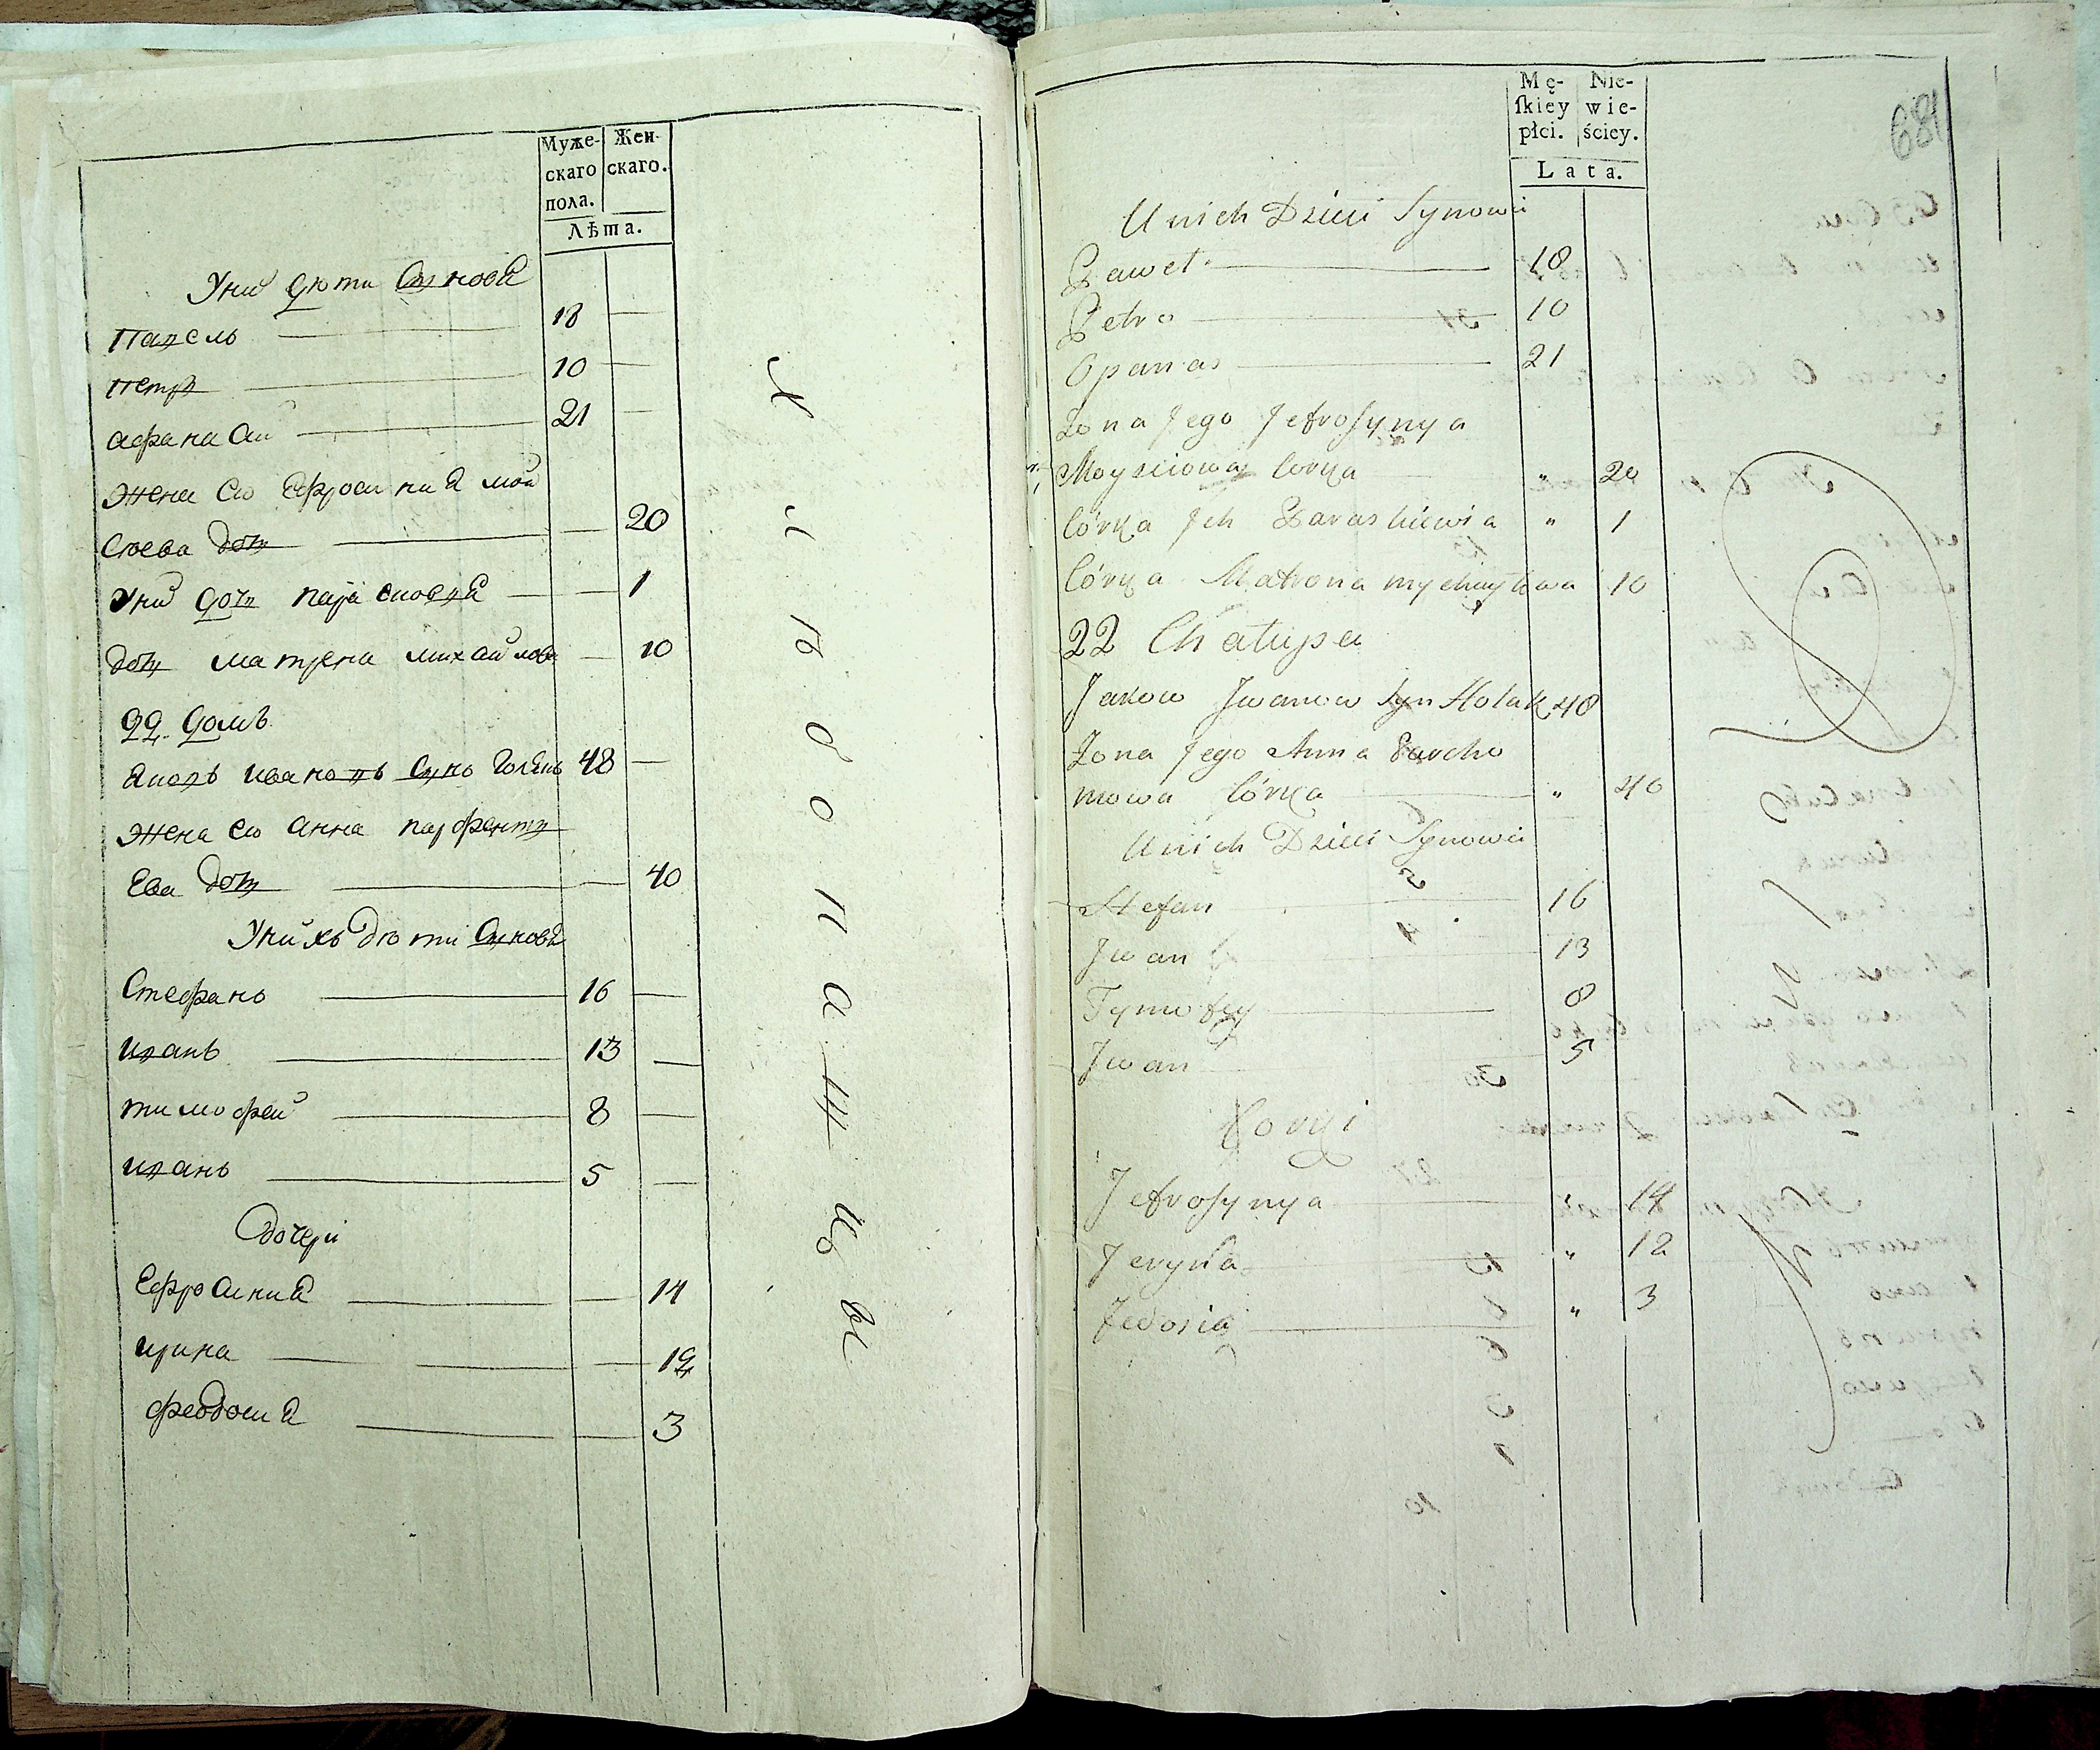 Муже-
скаго
пола.
Жен-
скаго.
Лѣта.
У ний дѣти Сынова
Павелъ 18
Петръ 10
Афанасий 21
Жена его Ефросиния мой
сѣева дочь 20
У ний дочь Парасковея 1
дочь Матрена Михайлова 10
22 домъ
Яковъ Ивановъ сынъ 48
Жена его Анна Парфенть
ева дочь 40
У нихъ дѣти Сынова
Стефанъ 16
Иванъ 13
Тимофей 8
Иванъ 5
дочери
Ефросиния 14
Ирина 12
Феодосия 3
Mę-
ſkiey
płci.
Nie-
wie-
ściey.
Lata.
681
U nich Dzieci Synowie
Paweł 18
Petro 10
Opanas 21
Żona Jego Jefrosynya
Moysiiowa Corka " 20
Córka Jch Paraskiewia " 1
Córka Matrona Mychayłowa 10
22 Chałupa
Jakow Jwanow Syn Holak 48
Żona Jego Anna Parcho
mowa Córka " 40
U nich Dzieci Synowie
Stefan 16
Jwan 13
Tymofey 8
Jwan 5
Corki
Jefrosynya " 14
Jeryna " 12
Fedosia " 3